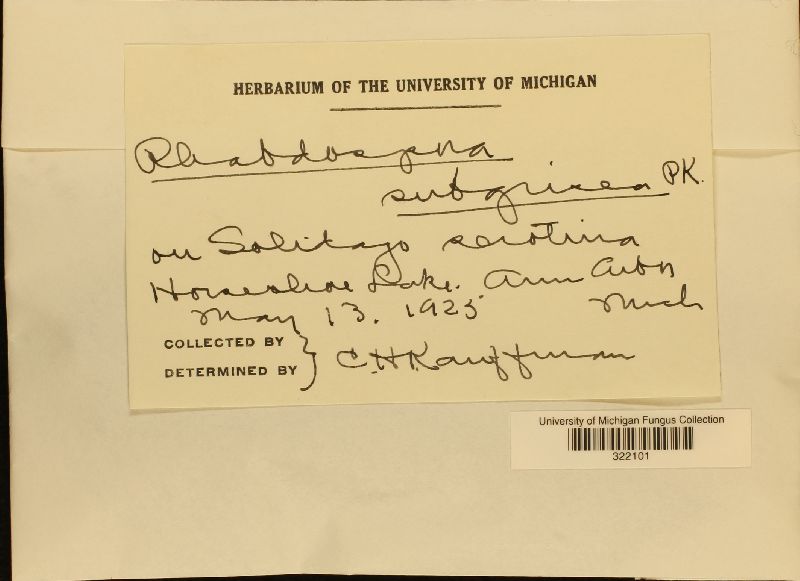 HERBARIUM OF THE UNIVERSITY OF MICHIGAN
Rhabdospora
subgrisea PK.
on Solidago serotina
Horseshoe Lake. Ann Arbor
May 13. 1925 Mich
COLLECTED BY
DETERMINED BY } C.H. Kauffman
University of Michigan Fungus Collection
322101